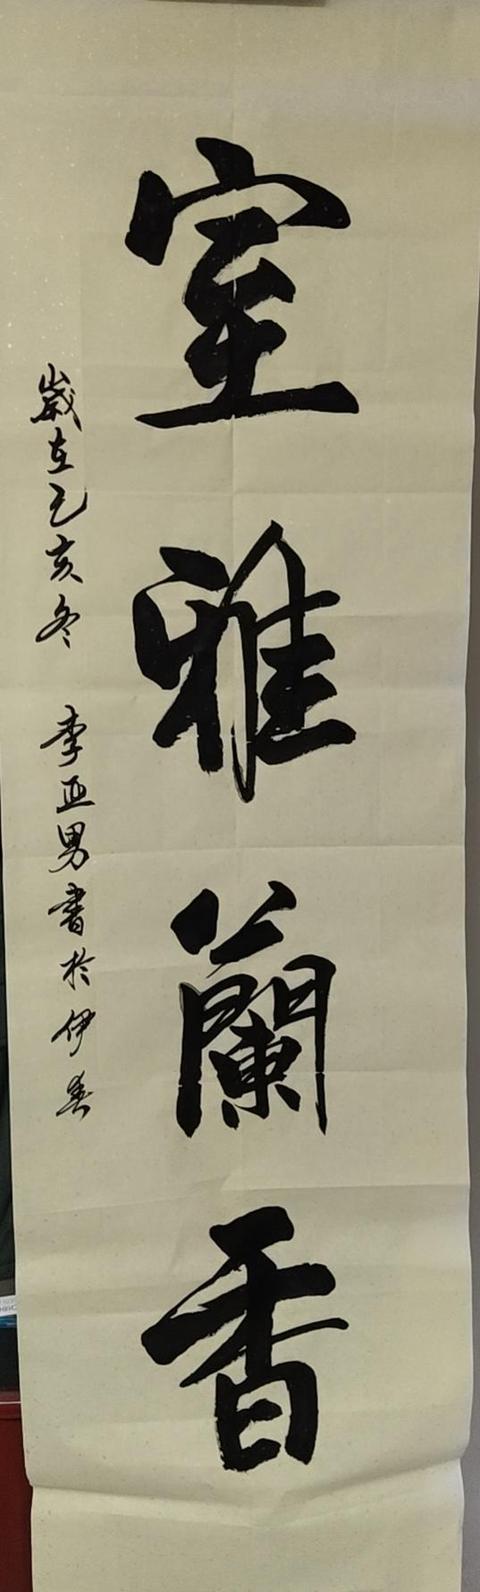 室雅蘭香
歲在乙亥冬 李亞男書於伊春